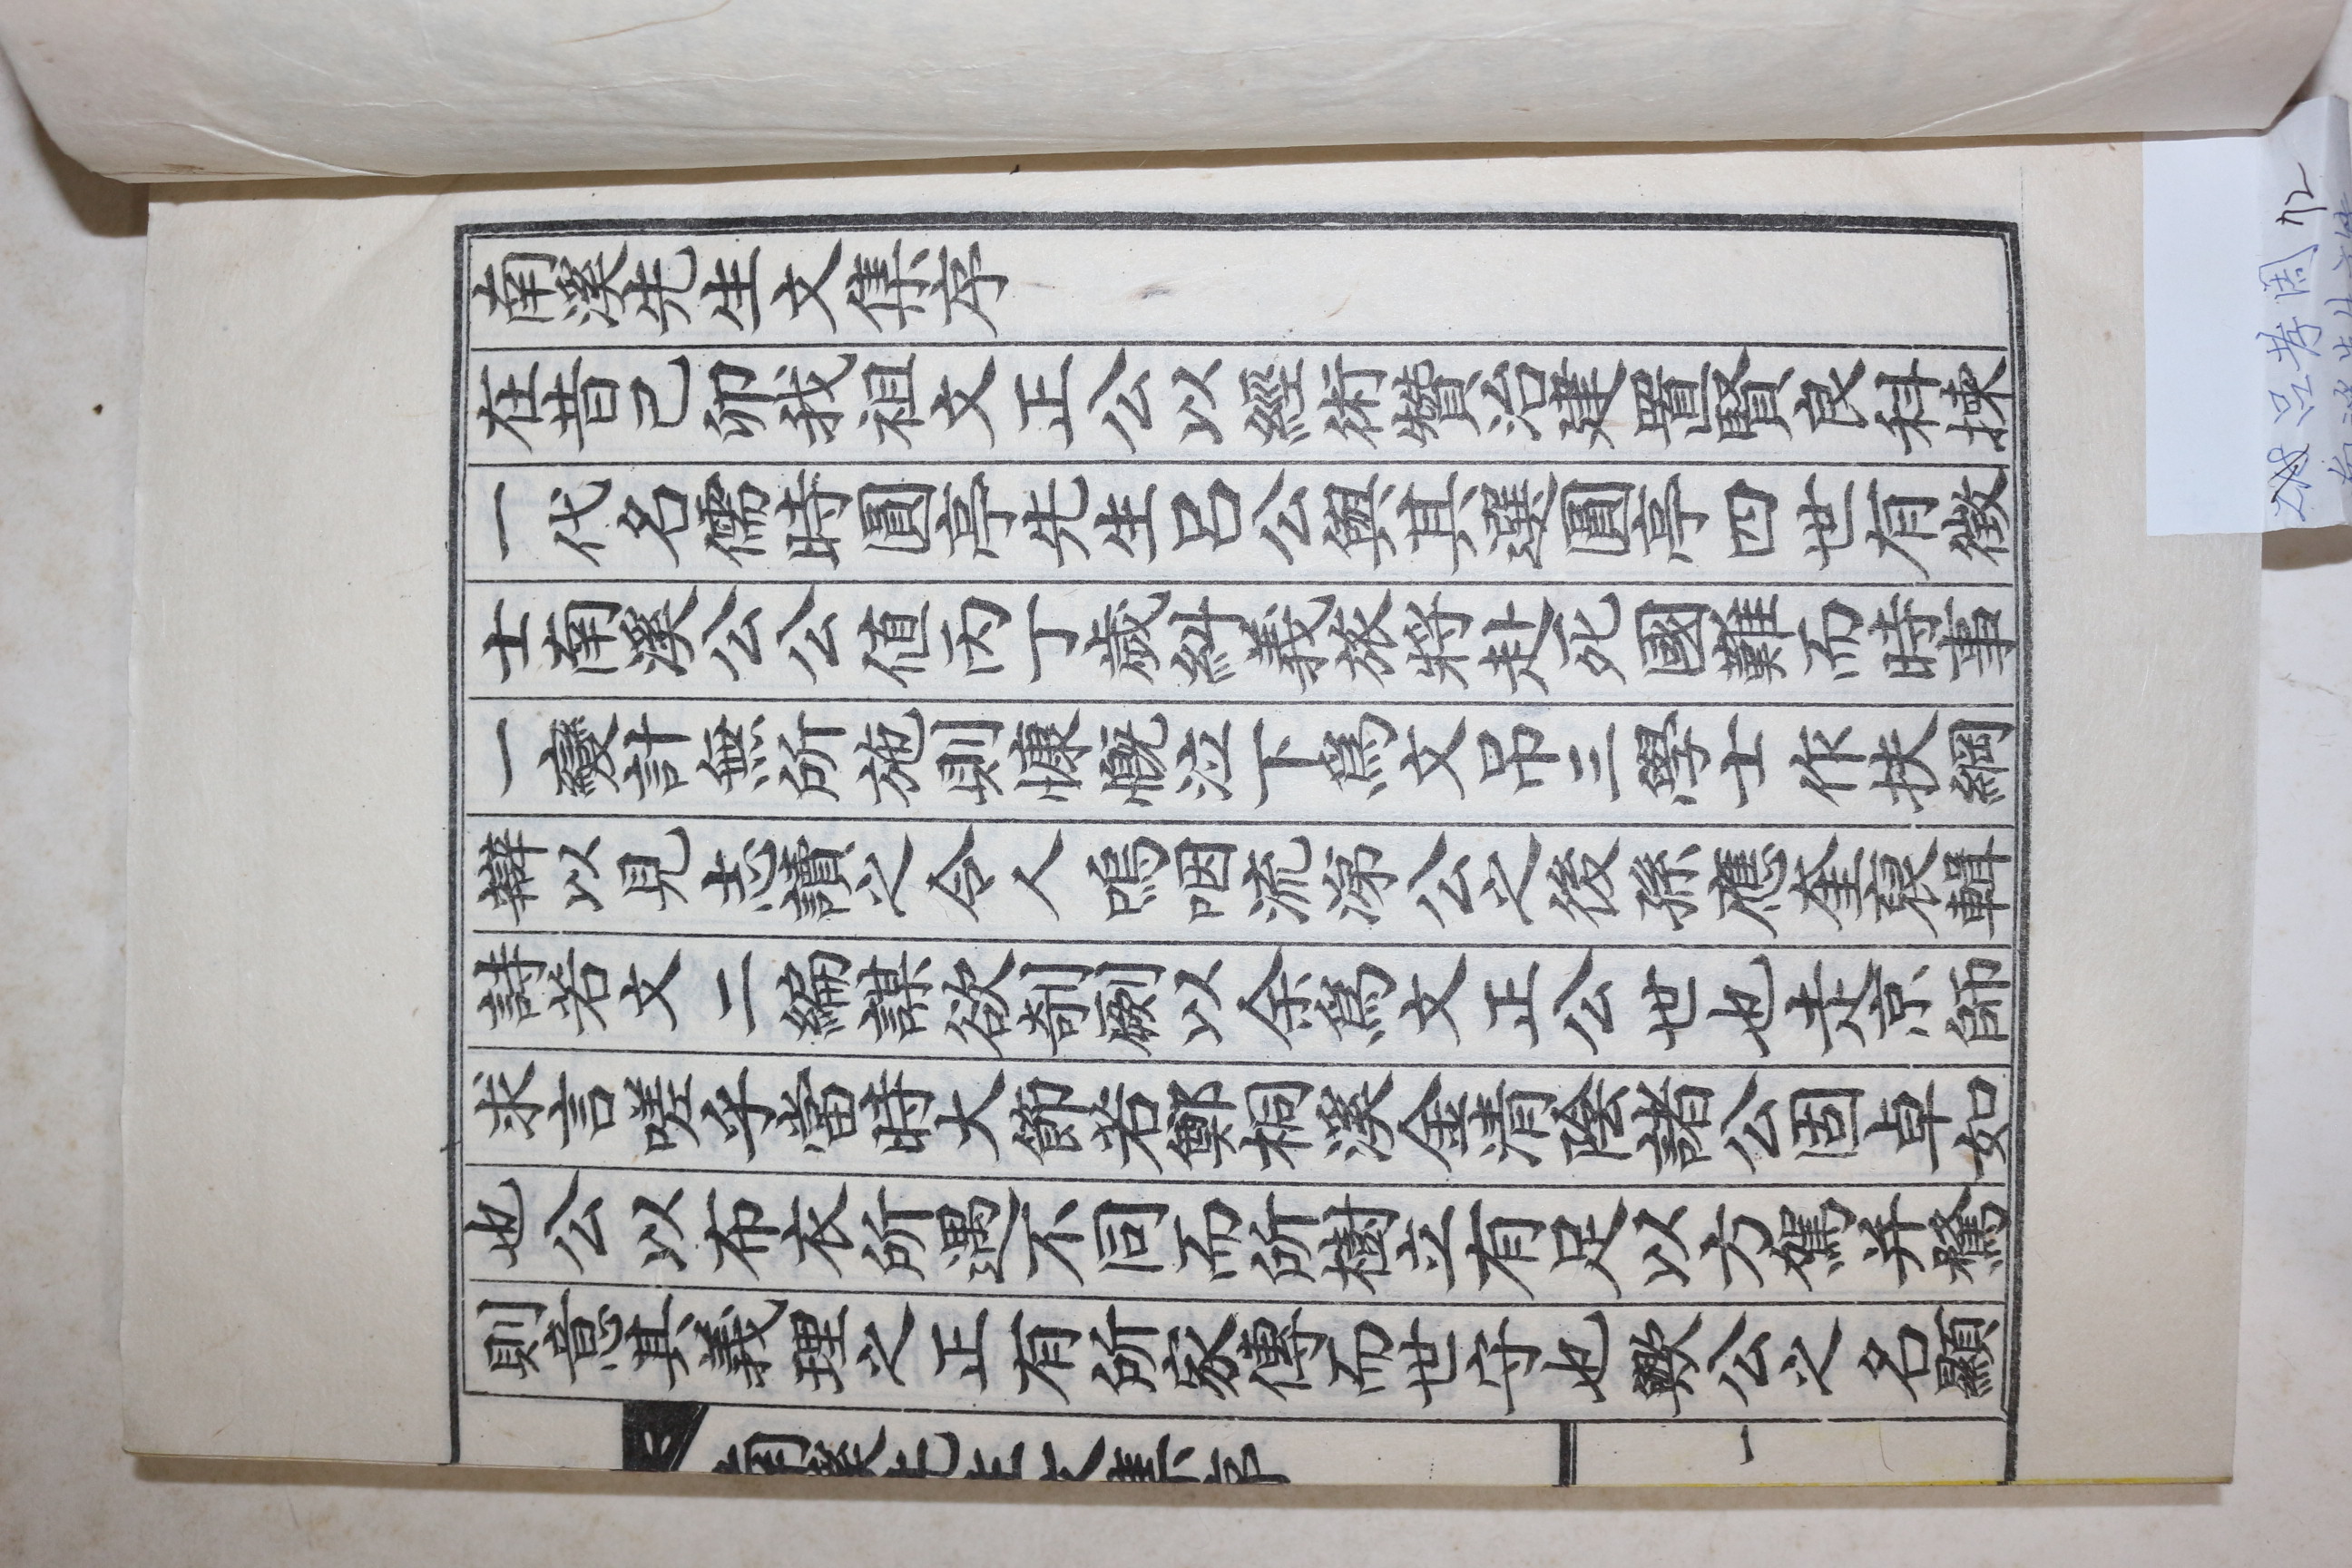 南溪先生文集序
在昔己卯我祖文正公以經術贊治建置賢良科揀
一代名儒時圓亭先生呂公與其選圓亭四世有徵
士南溪公公值丙丁歲糾義旅將赴死國難而時事
一變計無所施則慷慨泣下爲文吊三學士作扶綱
辯以見志讀之令人嗚咽流涕公之後孫應奎裒輯
詩若文二編謀欲剞劂以余爲文正公世也走京師
求言嗟乎當時大節若鄭桐溪金清陰諸公固卓如
也公以布衣所遇不同而所樹立有足以方駕并騖
則意其義理之正有所家傳而世守也歟公之名顯
南溪先生文集序
一
呂孝周 72